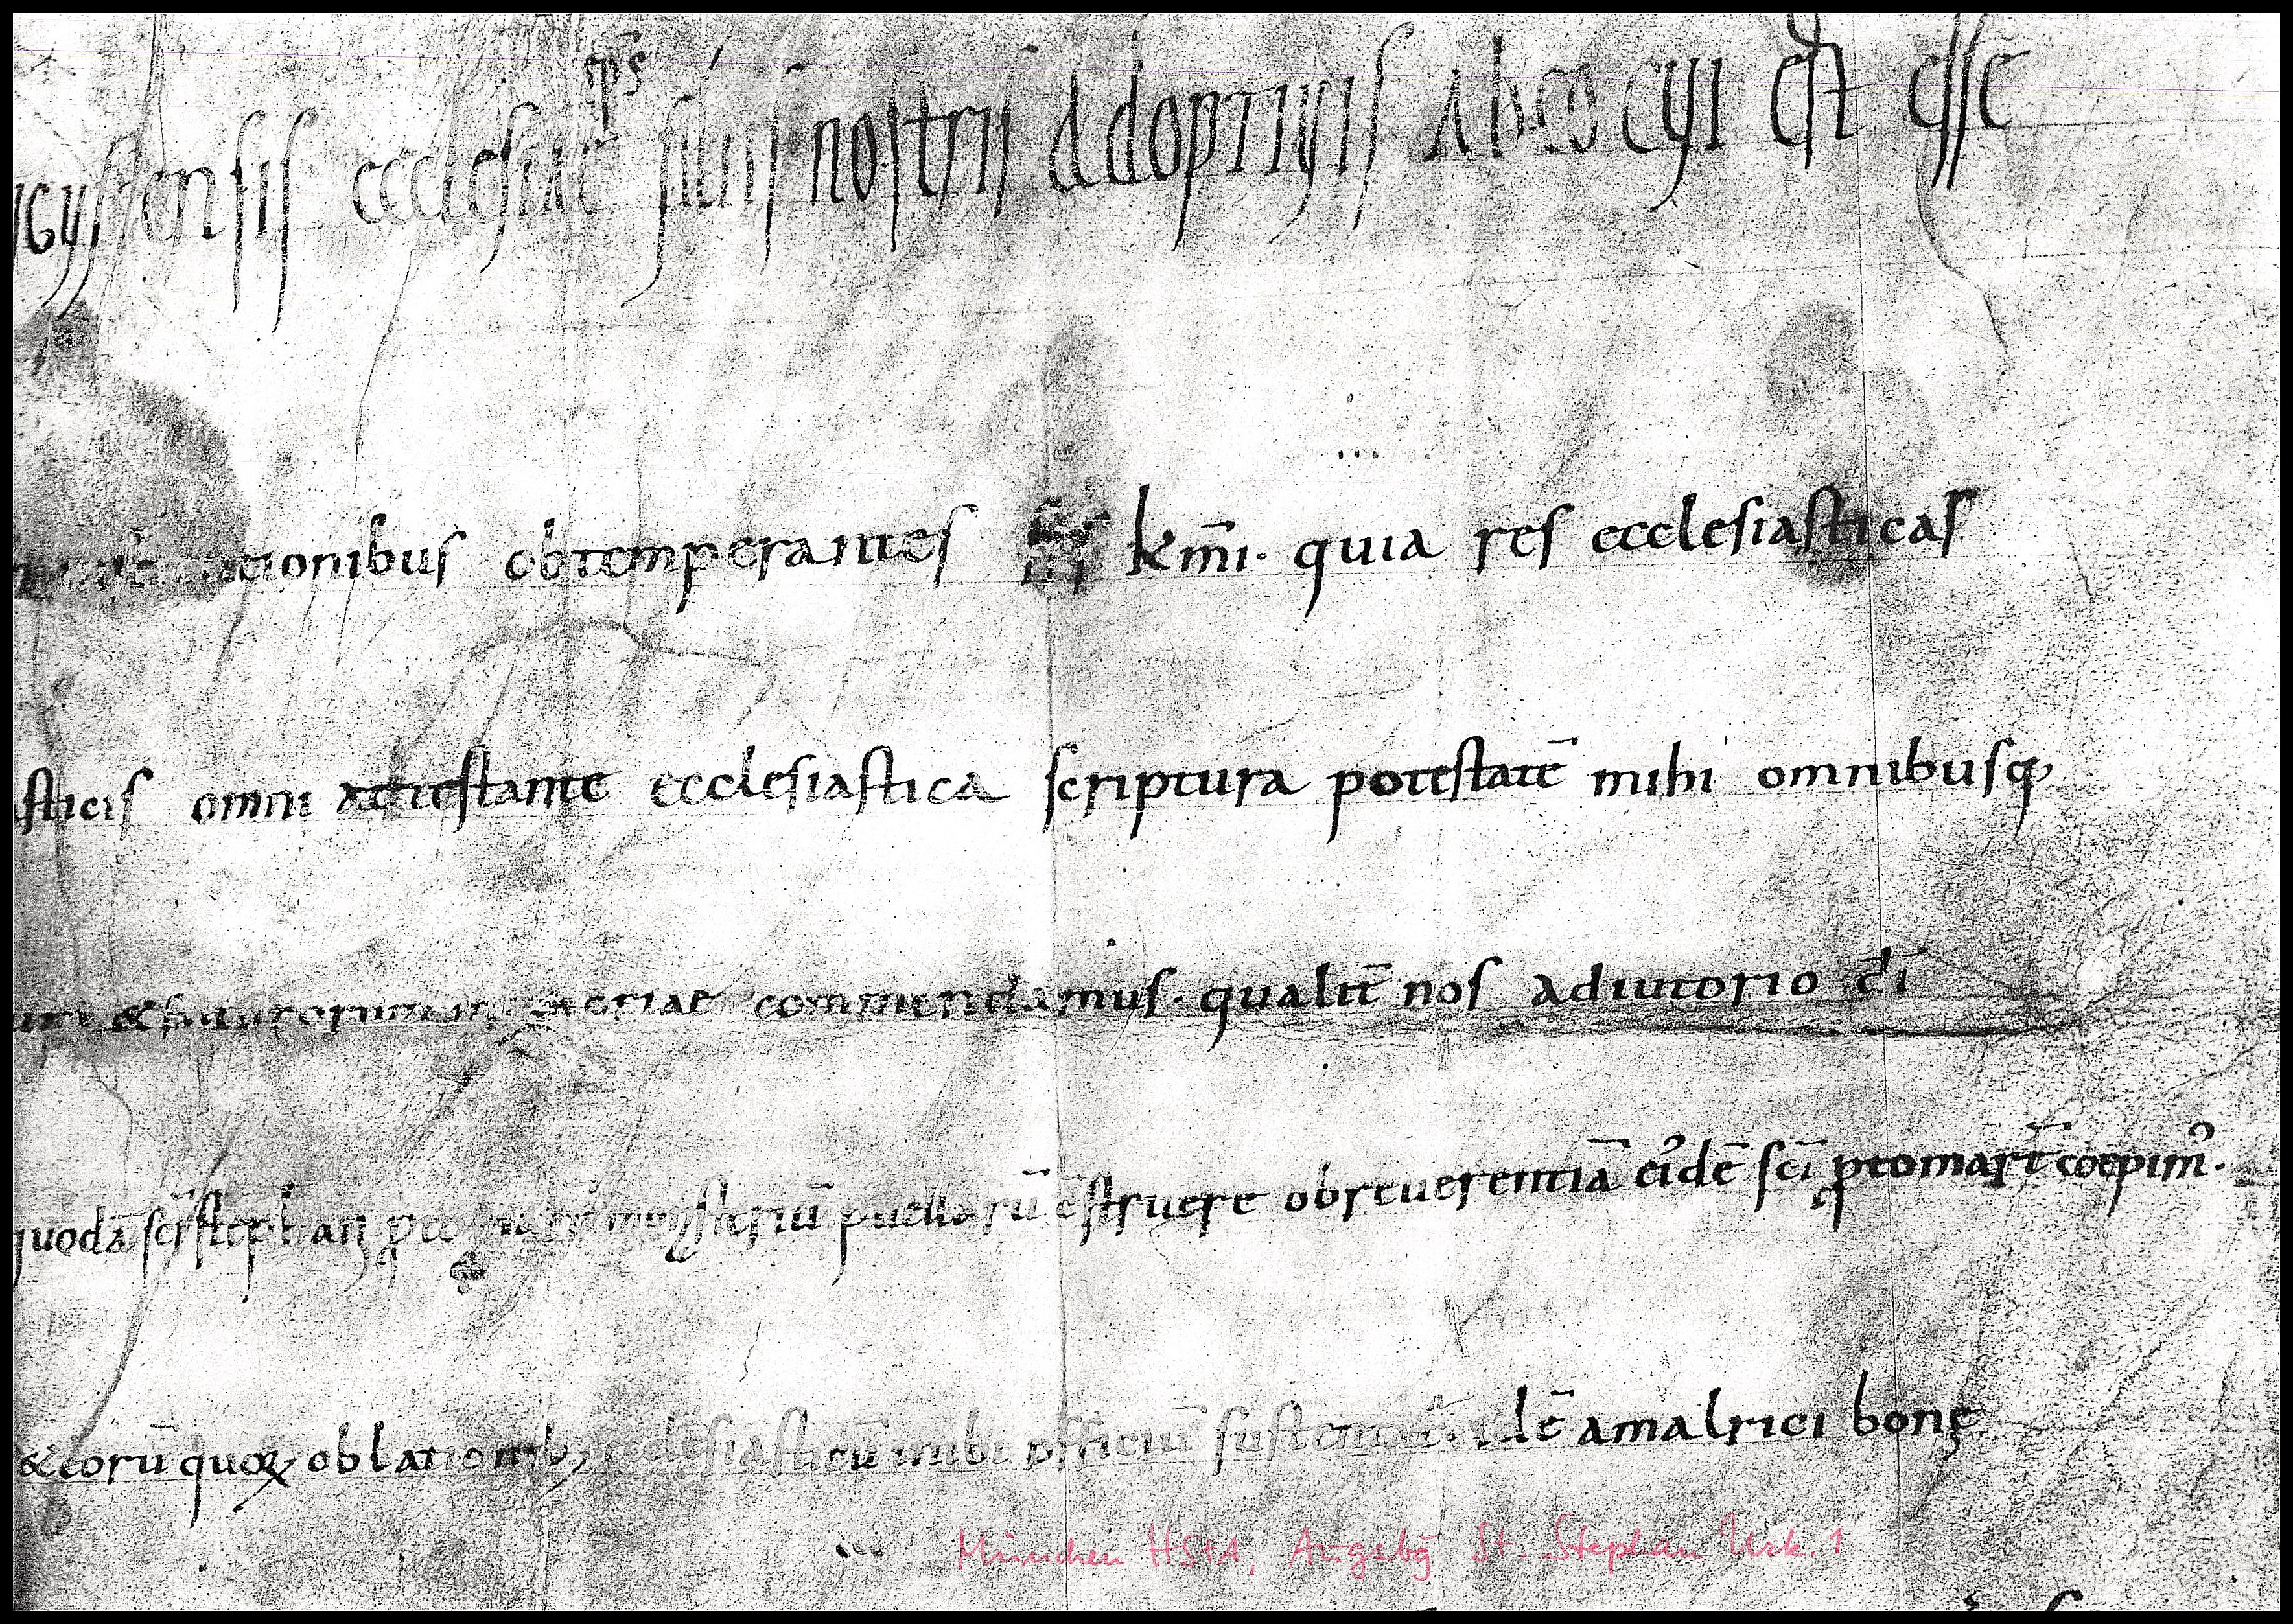 gustensis ecclesiae eps filiis nostris adoptiuis ab eo cui est esse
tionibus obtemperantes kmī. quia res ecclesiasticas
sticis omni attestante ecclesiastica scriptura potestatē mihi omnibusq;
commendamus. qualit̄ nos adiutorio dī
quodā sc̄i stephani monasteriū puellarū c̄struere ob reuerentiā eidē sc̄i ꝓtomart̄ coepimꝰ.
& eorū quoꝝ oblationib; ecclesiasticū mihi officiū idē amalrici bonę
München HStA, Augsbg̅ St. Stephan Urk. 1